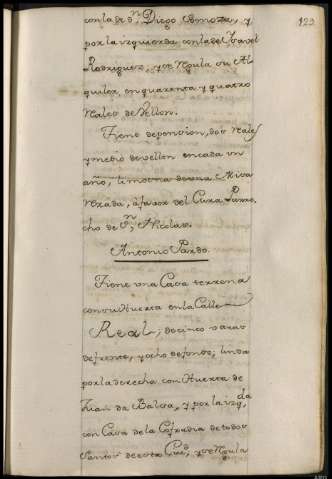 123
con la de Dn. Diego Osmoza, y
por la izquierda con la del Ysavel
Rodriguez, y se Regula su Al-
quiler, en quarenta y quatro
Reales de Vellon.
Tiene de pencion, dos Reales
y medio de vellon en cada un
año, limosna de una Misa
Rezada, à favor del Cura Parro-
cho de Sn. Nicolas.
Antonio Pardo.
Tiene una Casa terrena
con su Huerta en la Calle
Real, de cinco varas
de frente, y ocho de fondo; linda
por la derecha con Huerta de
Juan da Balsa, y por la izqda.
con Casa de la Cofradia de todos
Santos de esta Ciud. y se Regula